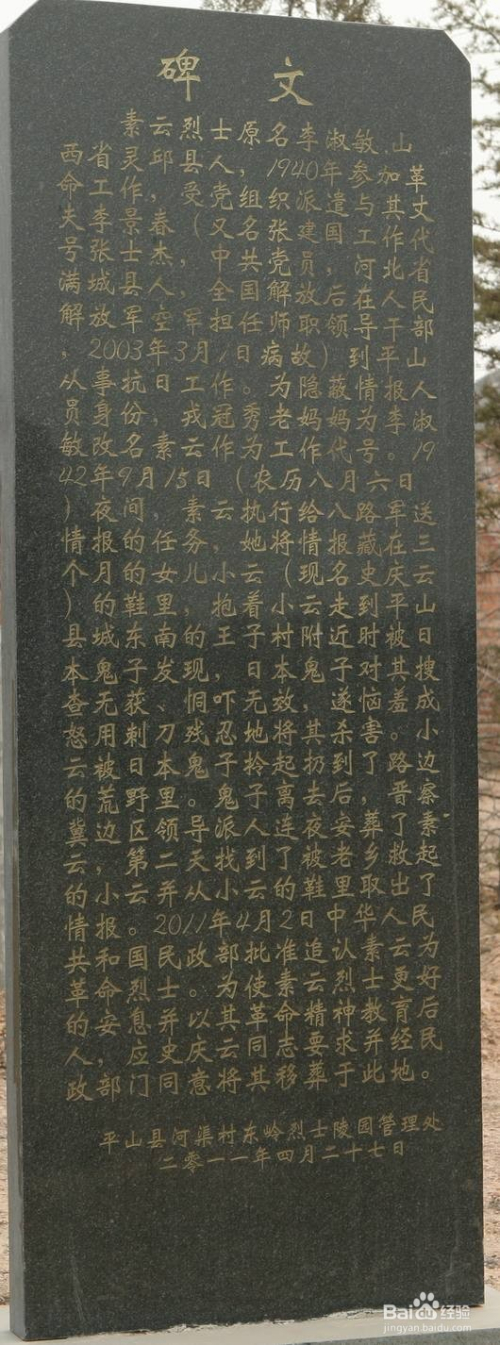 碑 文
素云烈士,原名李淑敏,山
西省灵邱县人,1940年参加革
命工作,受党组织派遣与其丈
夫李景春(又名张建国,工作代
号张士杰,中共党员,后河北省
满城县人,全国解放后在人民
解放军空军担任师职领导干部
,2003年3月1日病故)到平山
从事抗日工作。为隐蔽情报人
员身份,戎冠秀老妈妈为李淑
敏改名素云作为工作代号。19
42年9月15日(农历八月六日
)夜间,素云执行给八路军送
情报的任务,她将情报藏在三
个月的女儿小云(现名史庆云
)的鞋里,抱着小云走到平山
县城东南的王子村附近时被日
本鬼子发现,日本鬼子对其搜
查无获、恫吓无效,遂恼羞成
怒用刺刀残忍地将其杀害。小
云被日本鬼子拎起扔到了路边
的荒野里。鬼子离去后,晋察
冀边区领导派人连夜安葬了素
云,第二天找到了被老乡救起
的小云并从小云的鞋里取出了
情报。2011年4月2日中华人民
共和国民政部批准追认素云为
革命烈士。为使素云烈士更好
的安息并以其革命精神教育后
人,应史庆云同志要求并经民
政部门同意将其移葬于此地。
平山县河渠村东岭烈士陵园管理处
二零一一年四月二十七日
Baidu经验
jingyan.baidu.com